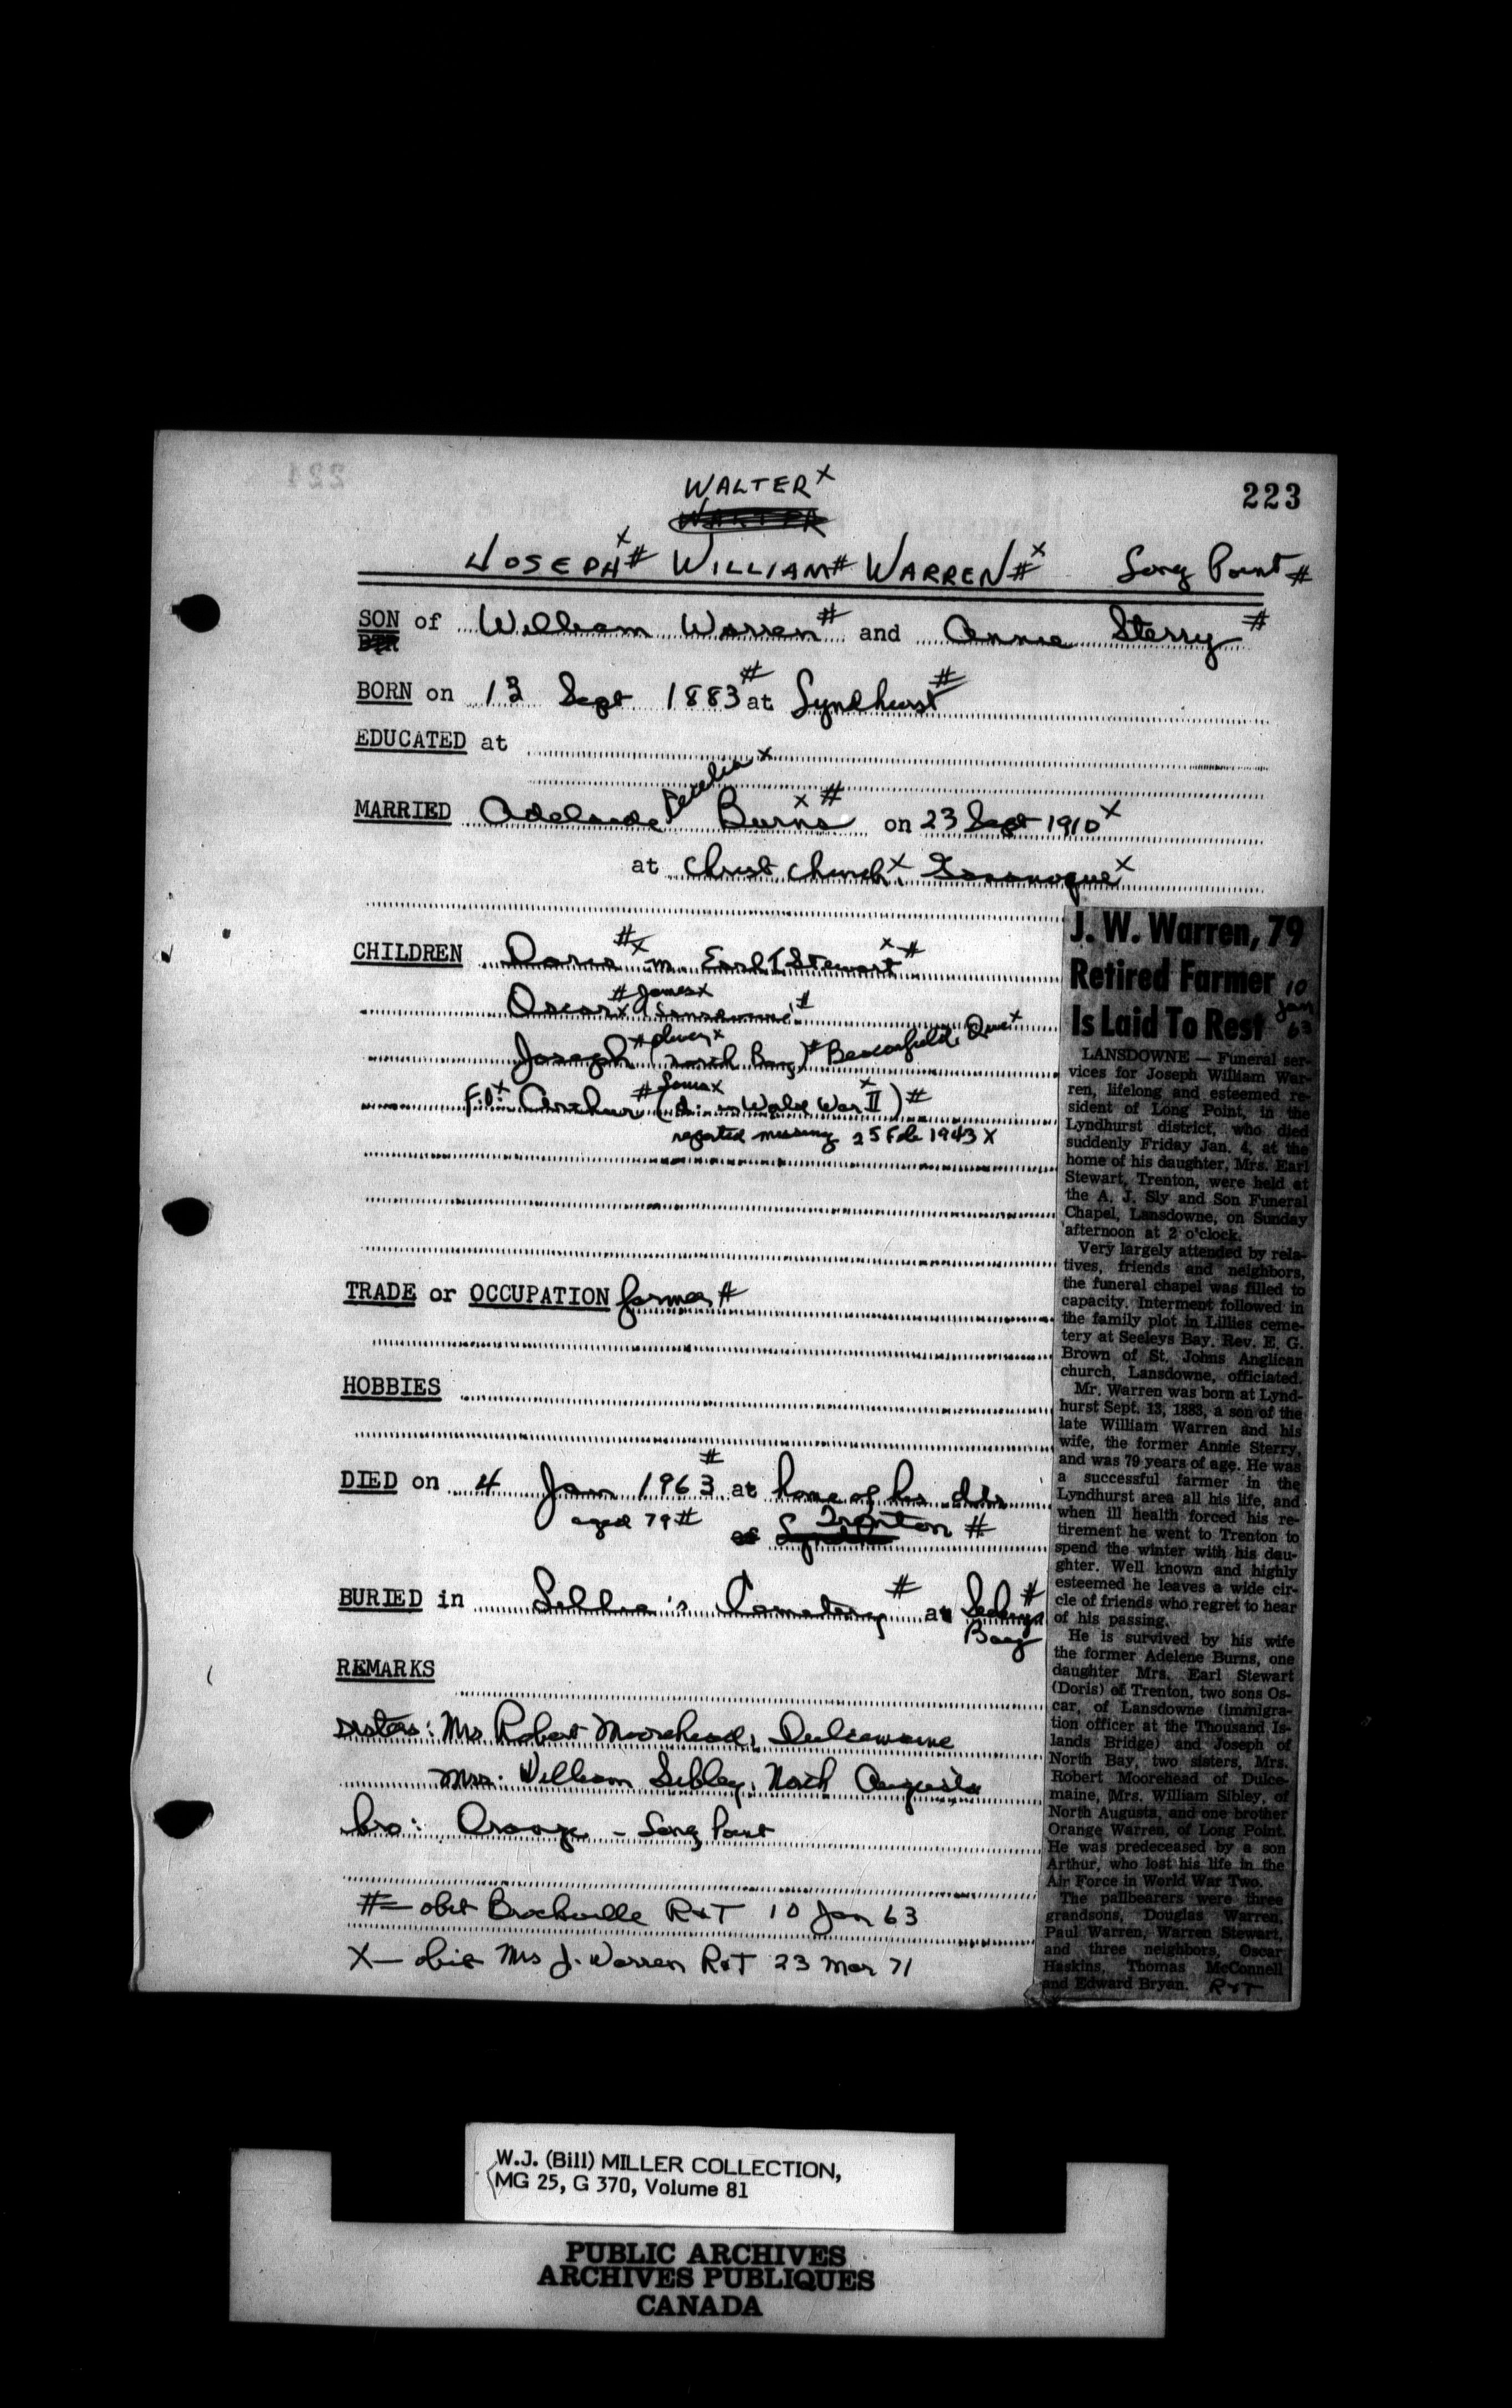 WALTER X
223
JOSEPH X# WILLIAM# WARREN X# Long Point #
SON of William Warren # and Annie Sterry #
BORN on 13 Sept 1883 # at Lyndhurst #
EDUCATED at
MARRIED Adelaide X Burns X# on 23 Sept 1910 X
at Christ Church X, Gananoque X
CHILDREN Doris #X m Earl T Stewart X#
Oscar X # James X (Lansdowne) #
Joseph # X (North Bay) # Beaconsfield, Que X
F/O X Arthur # James X (d. in World War II X) #
reported missing 25 Feb 1943 X
TRADE or OCCUPATION farmer #
HOBBIES
DIED on 4 Jan 1963 # at home of his dtr
aged 79 # Trenton #
BURIED in Lillie's Cemetery # at Seeleys #
Bay
REMARKS
sisters: Mrs Robert Moorehead, Dulcemaine
Mrs. William Sibley, North Augusta
bro: Orange - Long Point
# - obit Brockville R&T 10 Jan 63
X - obit Mrs J. Warren R&T 23 Mar 71
J. W. Warren, 79
Retired Farmer 10
Jan
Is Laid To Rest 63
LANSDOWNE — Funeral ser-
vices for Joseph William War-
ren, lifelong and esteemed re-
sident of Long Point, in the
Lyndhurst district, who died
suddenly Friday Jan. 4, at the
home of his daughter, Mrs. Earl
Stewart, Trenton, were held at
the A. J. Sly and Son Funeral
Chapel, Lansdowne, on Sunday
afternoon at 2 o'clock.
Very largely attended by rela-
tives, friends and neighbors,
the funeral chapel was filled to
capacity. Interment followed in
the family plot in Lillies ceme-
tery at Seeleys Bay. Rev. E. G.
Brown of St. Johns Anglican
church, Lansdowne, officiated.
Mr. Warren was born at Lynd-
hurst Sept. 13, 1883, a son of the
late William Warren and his
wife, the former Annie Sterry,
and was 79 years of age. He was
a successful farmer in the
Lyndhurst area all his life, and
when ill health forced his re-
tirement he went to Trenton to
spend the winter with his dau-
ghter. Well known and highly
esteemed he leaves a wide cir-
cle of friends who regret to hear
of his passing.
He is survived by his wife
the former Adelene Burns, one
daughter Mrs. Earl Stewart
(Doris) of Trenton, two sons Os-
car, of Lansdowne (immigra-
tion officer at the Thousand Is-
lands Bridge) and Joseph of
North Bay, two sisters, Mrs.
Robert Moorehead of Dulce-
maine, Mrs. William Sibley, of
North Augusta, and one brother
Orange Warren, of Long Point.
He was predeceased by a son
Arthur, who lost his life in the
Air Force in World War Two.
The pallbearers were three
grandsons, Douglas Warren,
Paul Warren, Warren Stewart,
and three neighbors, Oscar
Haskins, Thomas McConnell
and Edward Bryan. R&T
W.J. (Bill) MILLER COLLECTION,
MG 25, G 370, Volume 81
PUBLIC ARCHIVES
ARCHIVES PUBLIQUES
CANADA